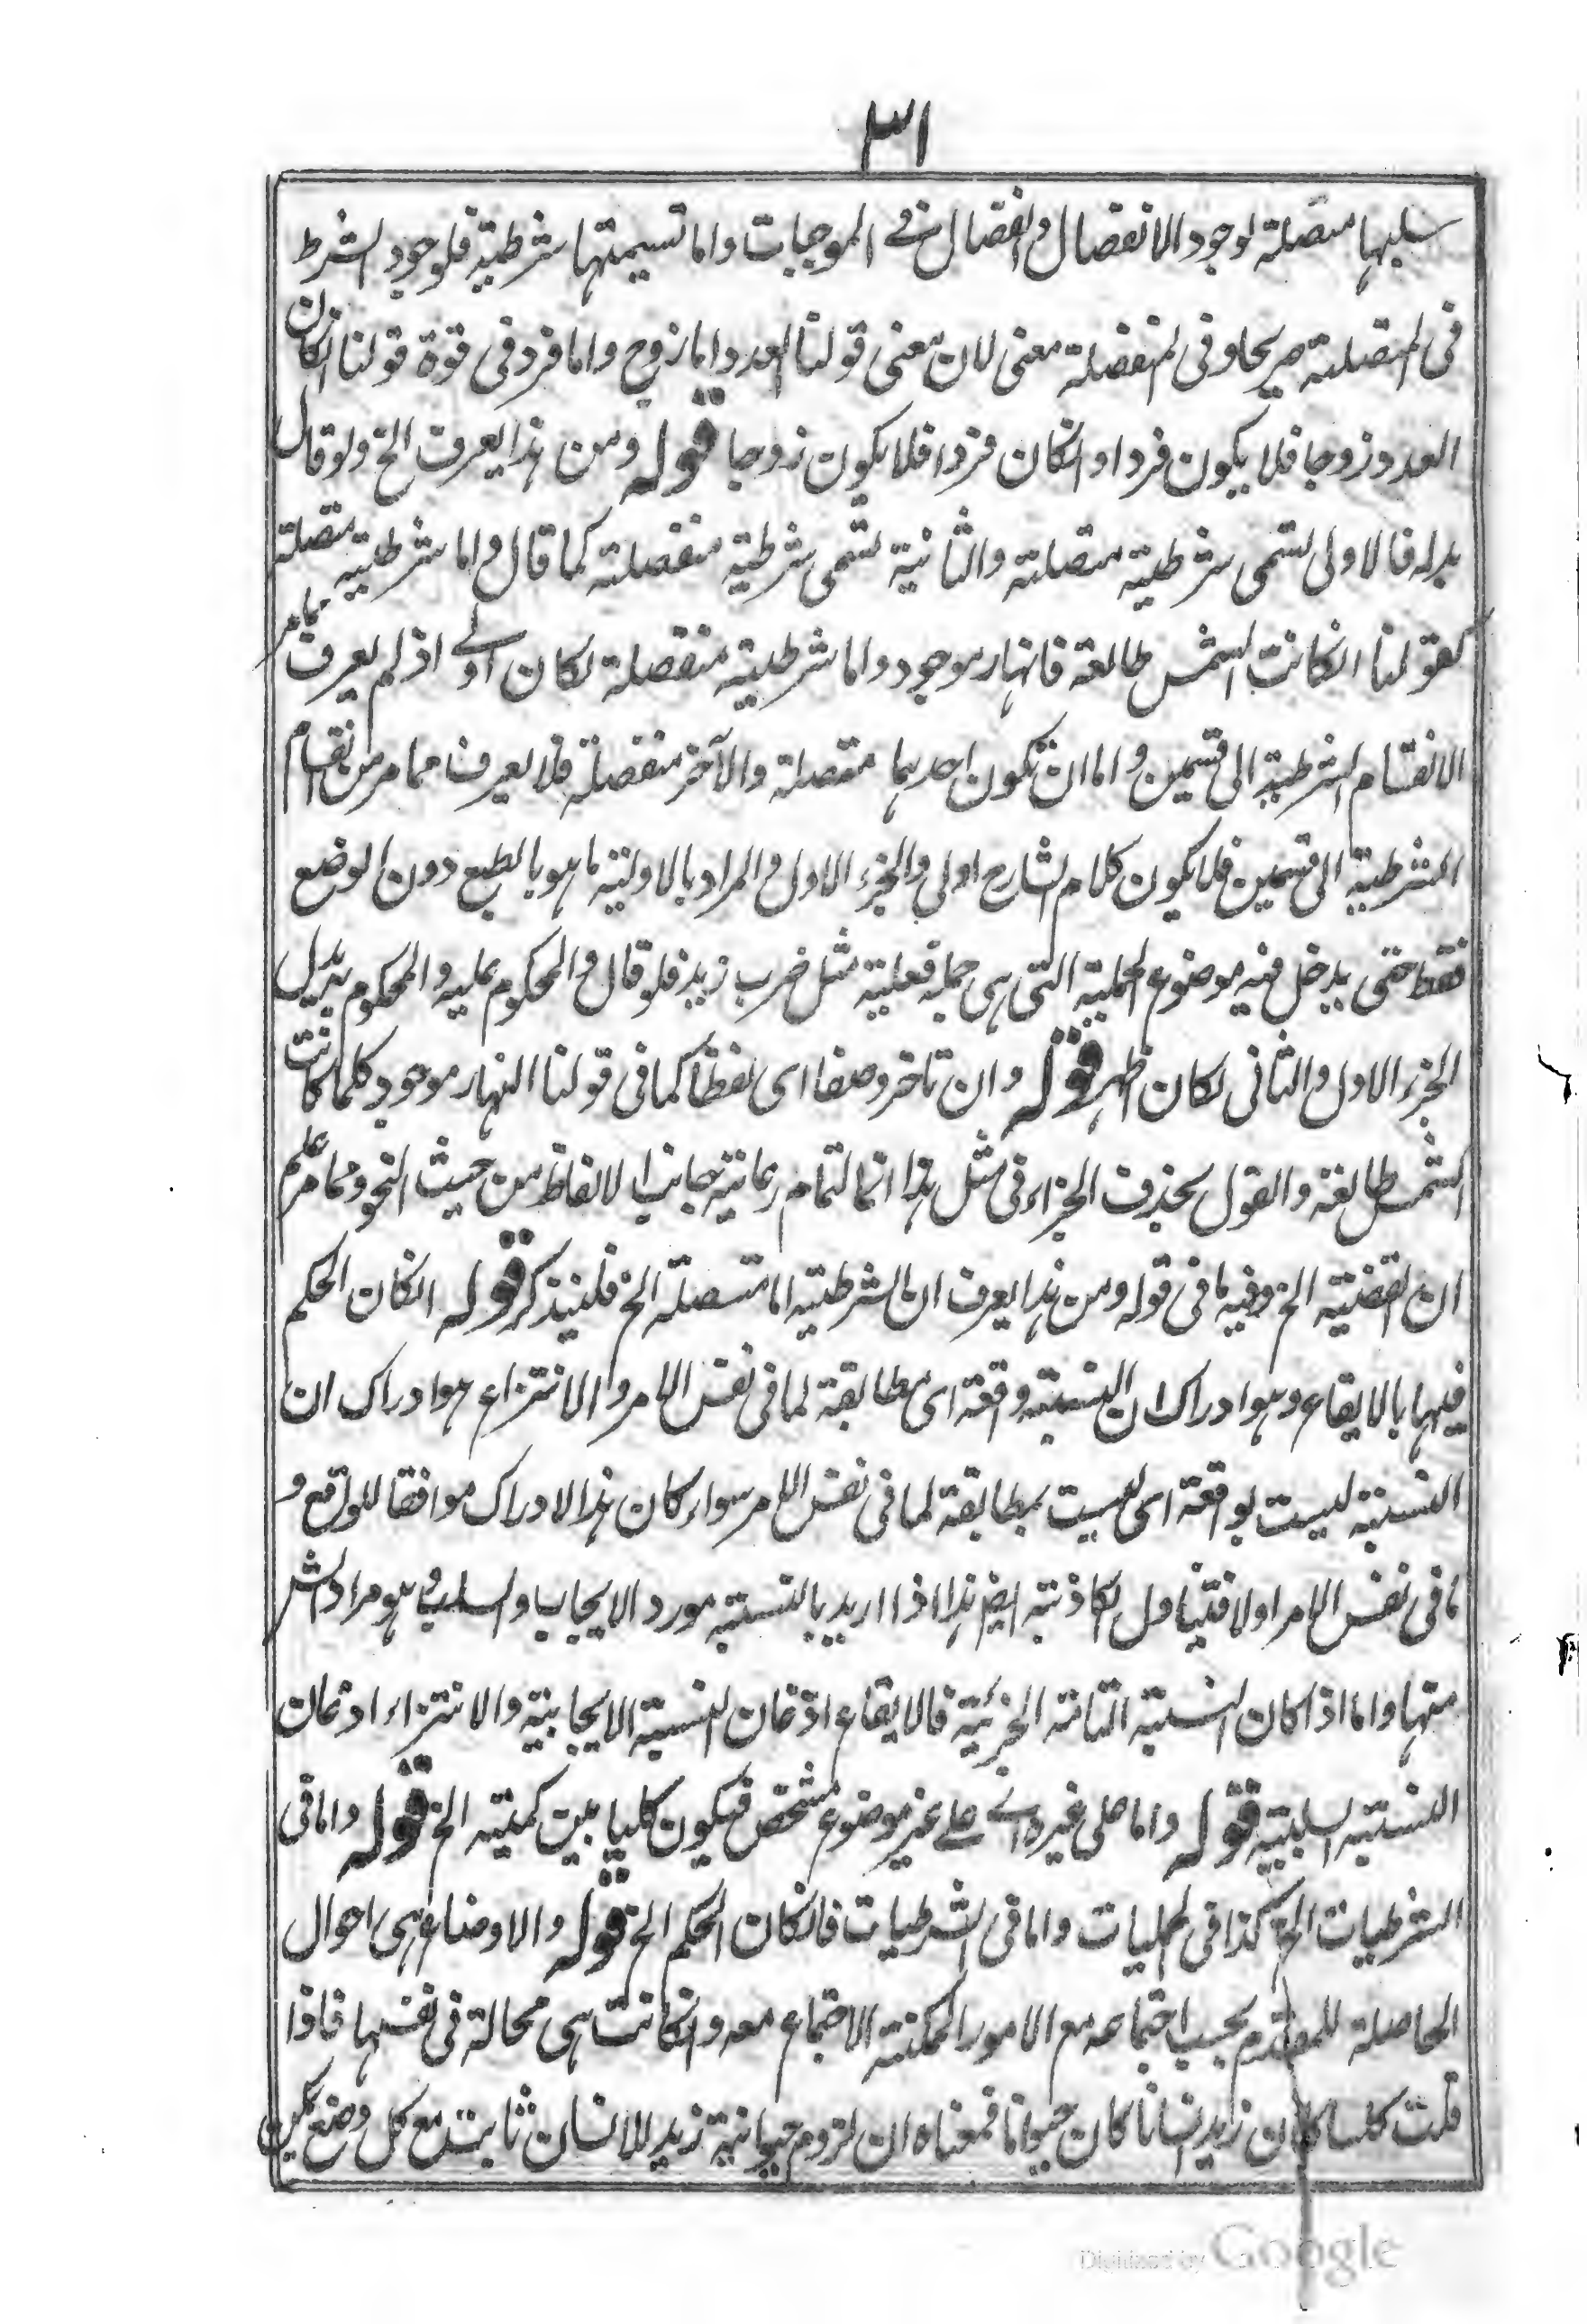 ٣١
سلبها متصلة لوجود الانفصال والفصال في الموجبات واما تسيمتها شرطية فلوجود الشرط
فى المتصلة صريحا وفى المنفصلة معنى لان معنى قولنا العدد اما زوج واما فرد فى قوة قولنا انكان
العدد زوجا فلا يكون فردا وانكان فردا فلا يكون زوجا قوله ومن هذا يعرف الخ ولو قال
بدله فالاولى تسمى شرطية متصلة والثانية تسمى شرطية منفصلة كما قال واما شرطية متصلة
كقولنا انكانت الشمس طالعة فالنهار موجود واما شرطية منفصلة لكان اولى اذ لم يعرف مما مر
الانقسام الشرطية الى قسمين واما ان تكون احديهما متصلة والآخر منفصلة فلا يعرف مما مر من انقسام
الشرطية الى قسمين فلا يكون كلام الشارح اولى والجزء الاول والمراد بالاولية ما هو بالطبع دون الوضع
فقط حتى يدخل فيه موضوع الحملية التى هى جملة فعلية مثل ضرب زيد فلو قال والمحكوم عليه والمحكوم به بدل
الجزء الاول والثانى لكان اظهر قوله وان تاخر وضعا اى لفظا كما فى قولنا النهار موجود كلما كانت
الشمس طالعة والقول بحذف الجزاء فى مثل هذا انما التمام رعاية جانب الالفاظ من حيث النحو ومما مر علم
ان القضية الخ وفيه ما فى قوله ومن هذا يعرف ان الشرطية اما متصلة الخ فليتذكر قوله انكان الحكم
فيها بالايقاع وهو ادراك ان النسبة واقعة اى مطابقة لما فى نفس الامر والانتزاع هو ادراك ان
النسبة ليست بواقعة اى ليست بمطابقة لما فى نفس الامر سواء كان هذا الادراك موافقا للواقع و
ما فى نفس الامر اولا فتيناول الكاذبة ايضا هذا اذا اريد بالنسبة مورد الايجاب والسلب وهو مراد الش
منها واما اذا كان النسبة التامة الجزئية فالايقاع اذعان النسبة الايجابية والانتزاع اذعان
النسبة السلبية قوله واما على غيره اى على غير موضوع مشخص فيكون كليا بين كميته الخ قوله واما فى
الشرطيات الخ كذا فى الحمليات واما فى الشرطيات فانكان الحكم الخ قوله والاوضاع هى احوال
الحاصلة للمقدم بحسب اجتماعه مع الامور الممكنة الاجتماع معه وانكانت هى محالة فى نفسها فاذا
قلت كلما كان زيد انسانا كان حيوانا فمعناه ان لزوم حيوانية زيد للانسان ثابت مع كل وضع يمكن
Digitized by Google